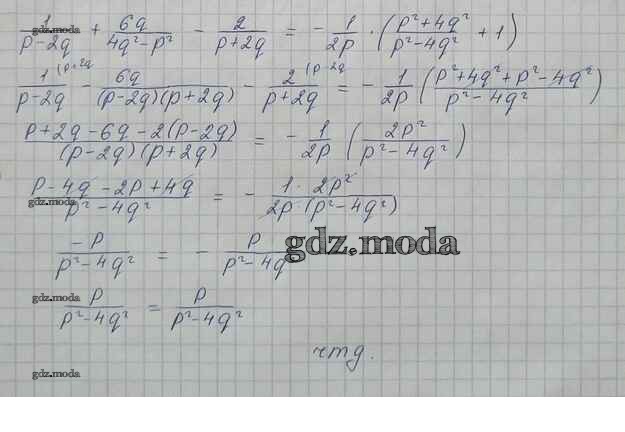 1/(p-2q) + 6q/(4q²-p²) - 2/(p+2q) = - 1/2p · (p²+4q²/(p²-4q²) + 1)
1/(p-2q) (p+2q - 6q/((p-2q)(p+2q)) - 2/(p+2q) (p-2q = - 1/2p ((p²+4q²+p²-4q²)/(p²-4q²))
(p+2q-6q-2(p-2q))/((p-2q)(p+2q)) = - 1/2p (2p²/(p²-4q²))
(p-4q-2p+4q)/(p²-4q²) = - (1·2p²)/(2p·(p²-4q²))
-p/(p²-4q²) = - p/(p²-4q
p/(p²-4q²) = p/(p²-4q²)
чтд.
gdz.moda
gdz.moda
gdz.moda
gdz.moda
gdz.moda